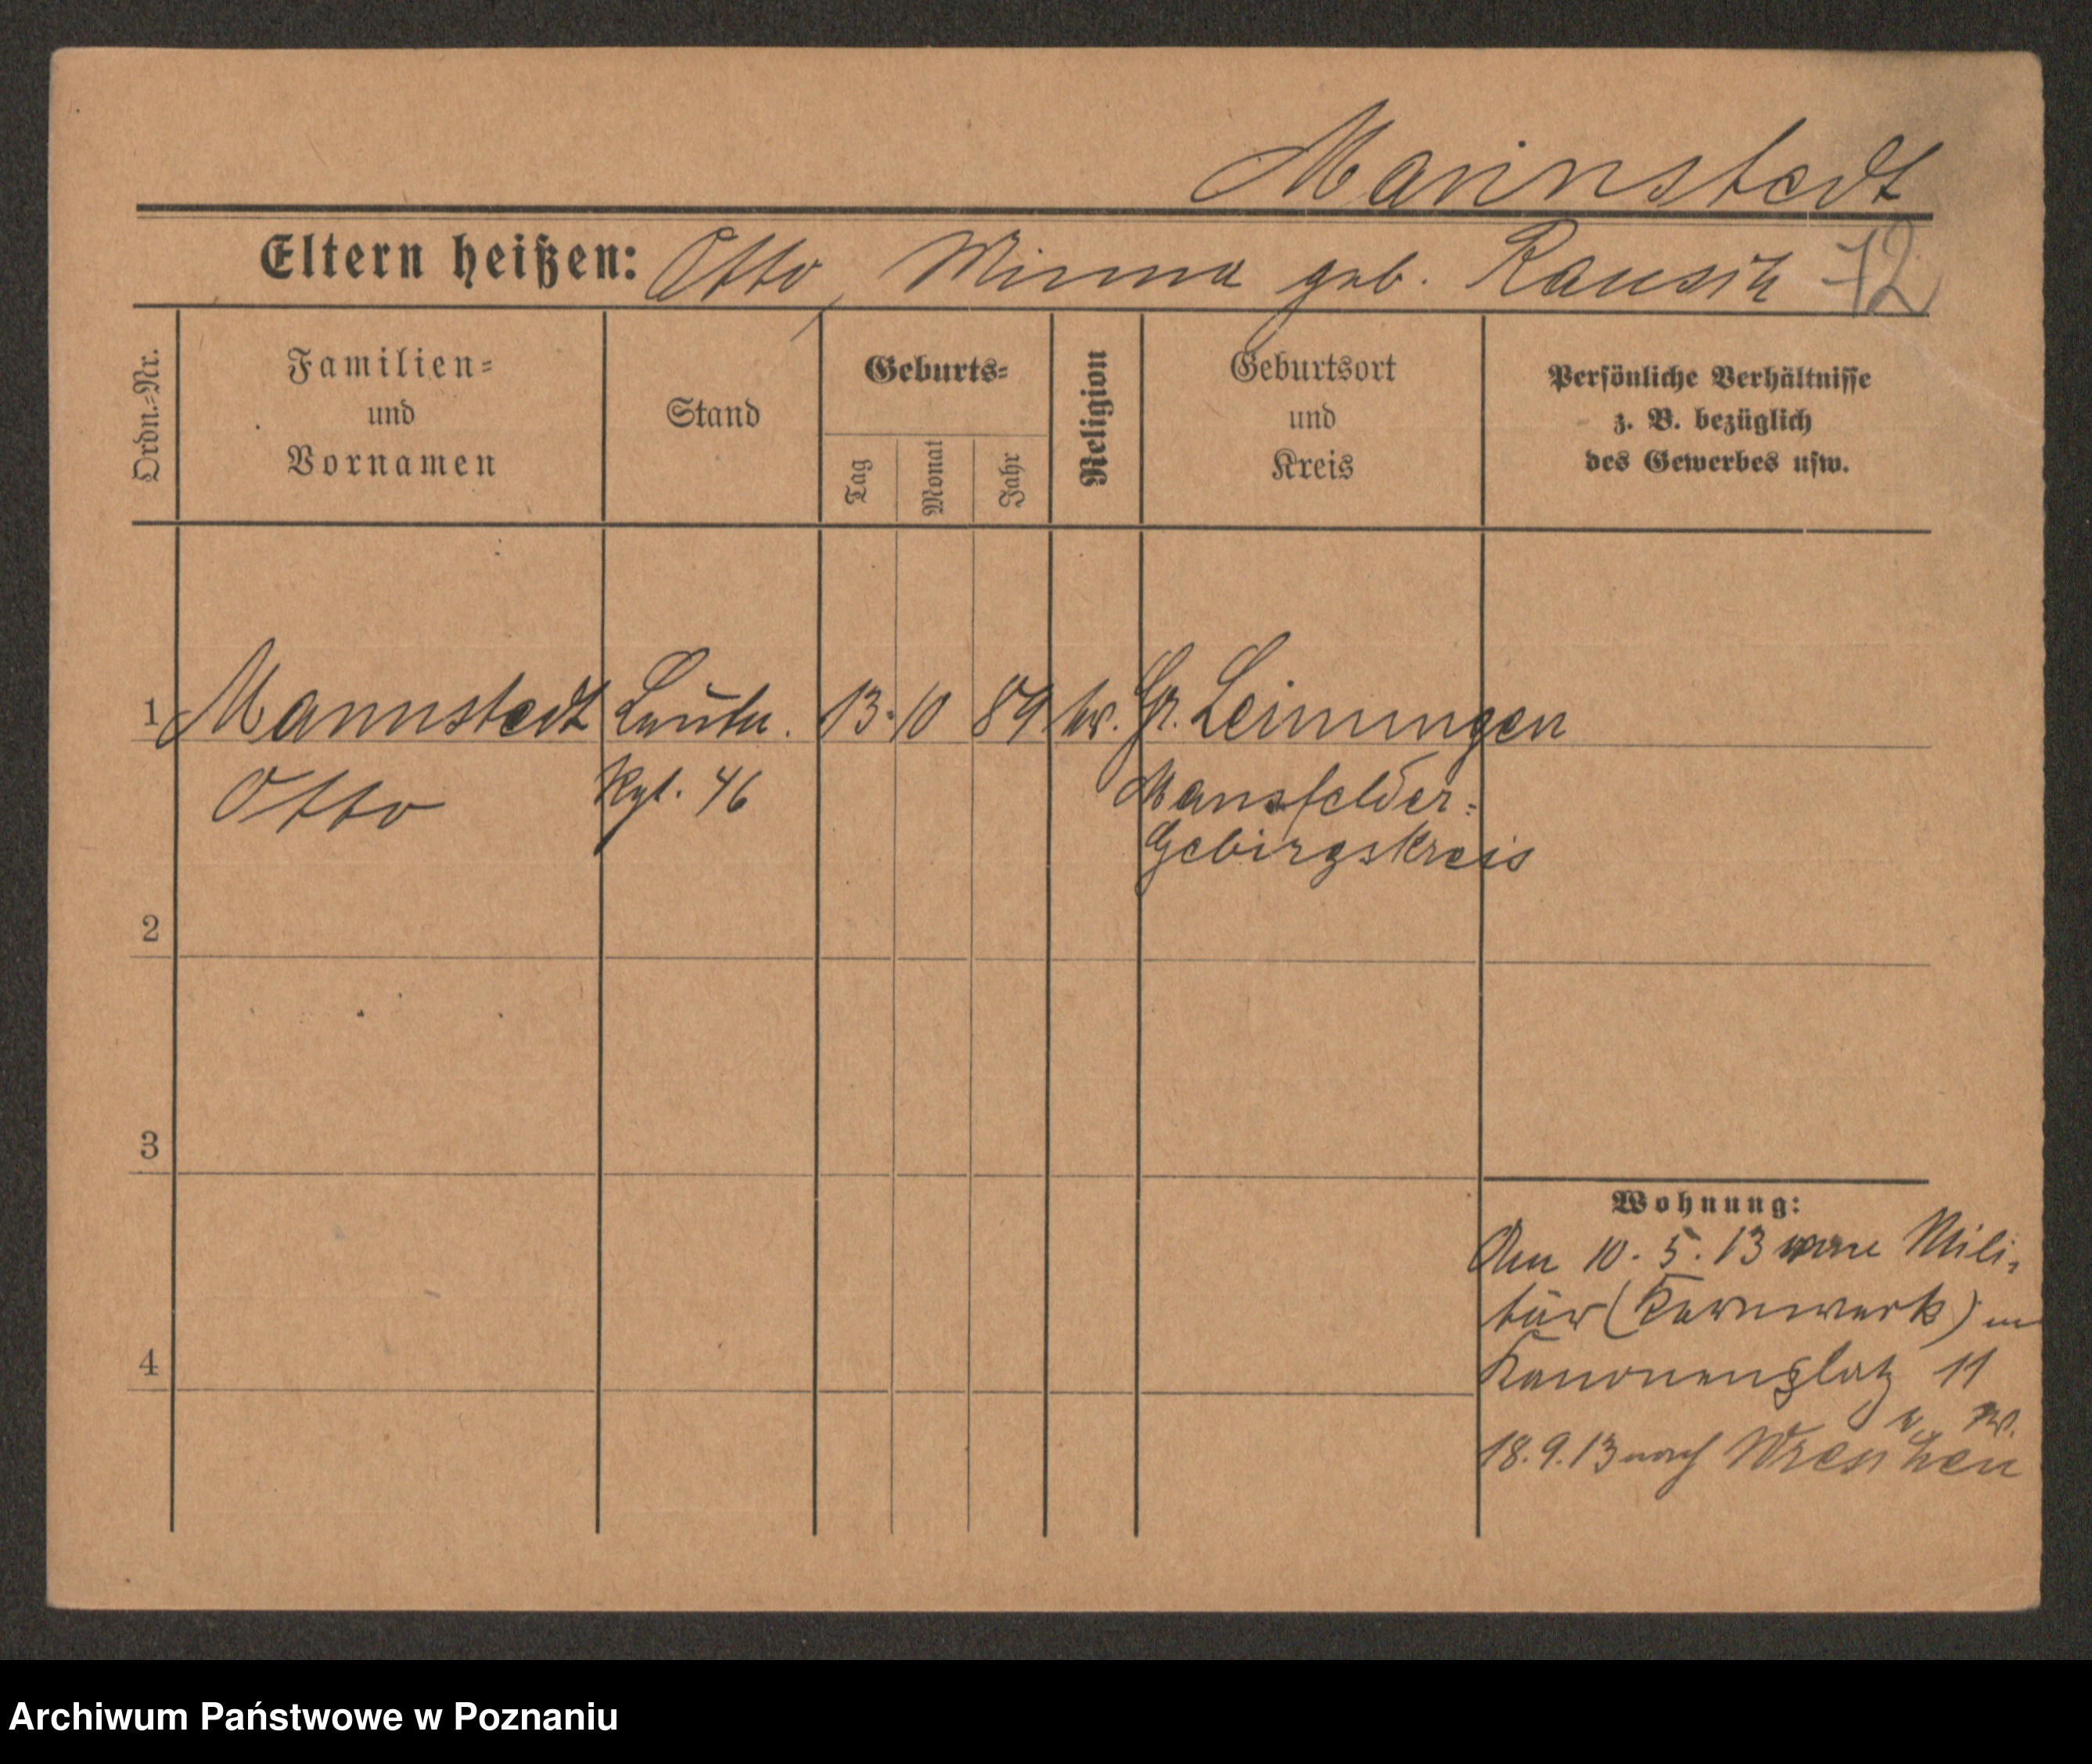 Mannstedt
Eltern heißen: Otto, Minna geb. Rausch
72
Ordn.=Nr.
Familien=
und
Vornamen
Stand
Geburts=
Tag
Monat
Jahr
Religion
Geburtsort
und
Kreis
Persönliche Verhältnisse
z. B. bezüglich
des Gewerbes usw.
1 Mannstedt Leutn. 13. 10 89 ev. Gr. Leinungen
Otto Rgt. 46 Mansfelder=
Gebirgskreis
2
3
4
Wohnung:
Den 10. 5. 13 Mili=
tär (Kernwerk) in
Kanonenplatz 11
18. 9. 13 nach Wreschen
Archiwum Państwowe w Poznaniu